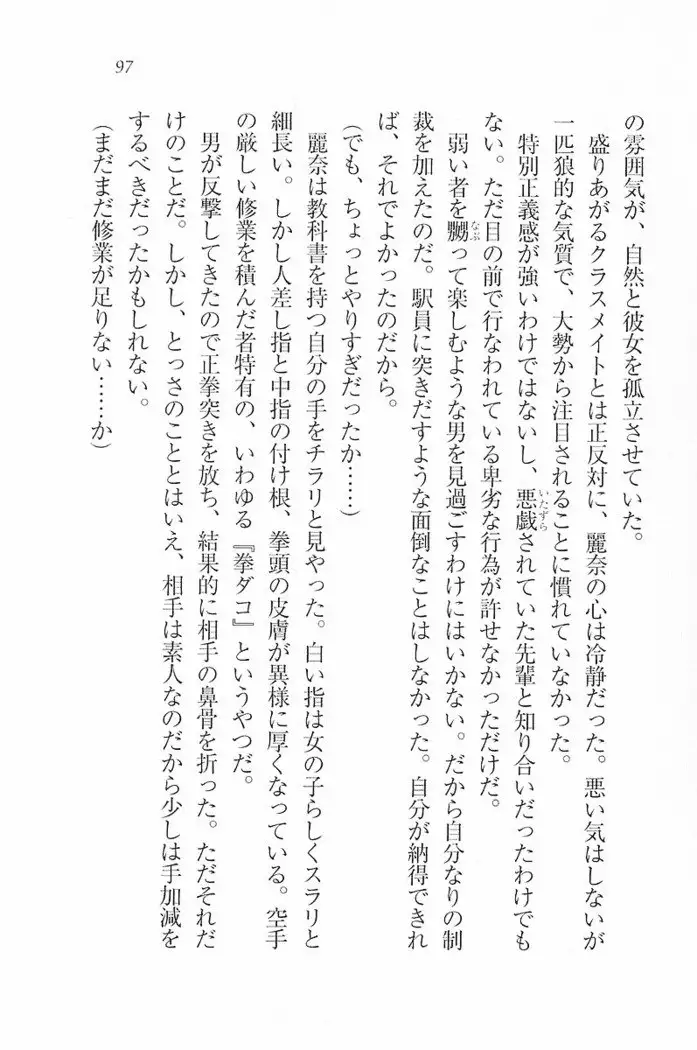 97
の雰囲気が、自然と彼女を孤立させていた。
盛りあがるクラスメイトとは正反対に、麗奈の心は冷静だった。悪い気はしないが
一匹狼的な気質で、大勢から注目されることに慣れていなかった。
特別正義感が強いわけではないし、悪戯されていた先輩と知り合いだったわけでも
いたずら
ない。ただ目の前で行なわれている卑劣な行為が許せなかっただけだ。
弱い者を嬲って楽しむような男を見過ごすわけにはいかない。だから自分なりの制
なぶ
裁を加えたのだ。駅員に突きだすような面倒なことはしなかった。自分が納得できれ
ば、それでよかったのだから。
(でも、ちょっとやりすぎだったか……)
麗奈は教科書を持つ自分の手をチラリと見やった。白い指は女の子らしくスラリと
細長い。しかし人差し指と中指の付け根、拳頭の皮膚が異様に厚くなっている。空手
の厳しい修業を積んだ者特有の、いわゆる『拳ダコ』というやつだ。
男が反撃してきたので正拳突きを放ち、結果的に相手の鼻骨を折った。ただそれだ
けのことだ。しかし、とっさのこととはいえ、相手は素人なのだから少しは手加減を
するべきだったかもしれない。
(まだまだ修業が足りない……か)